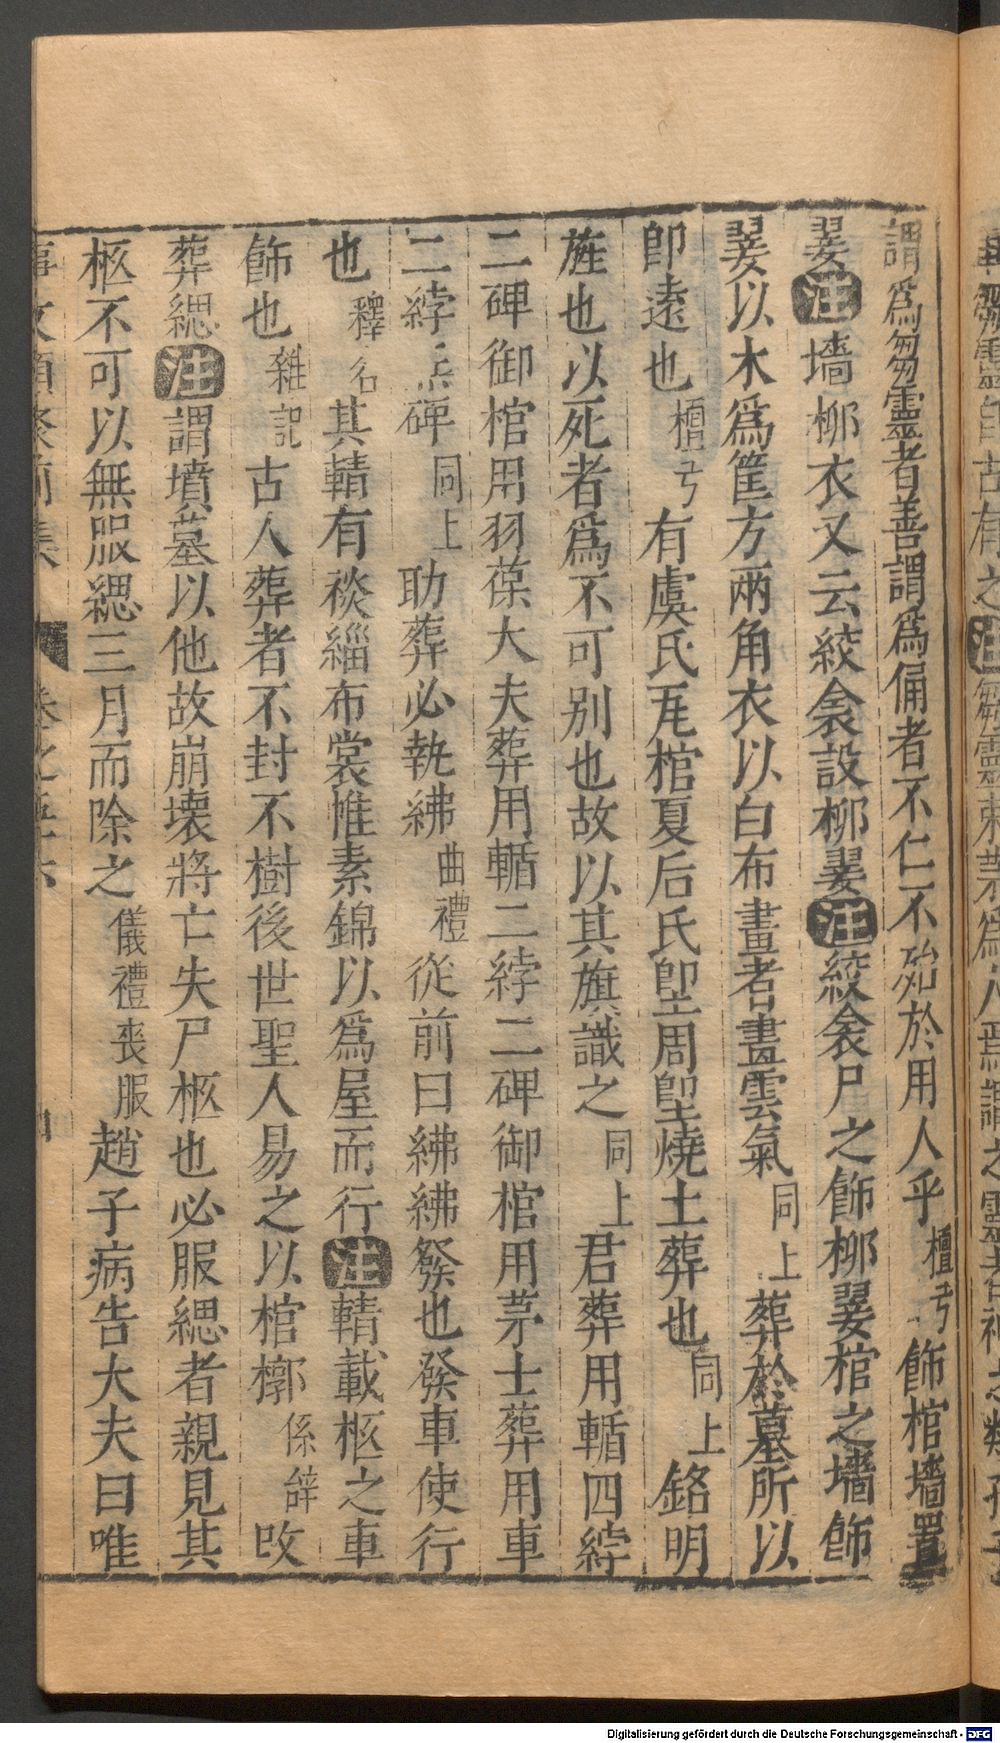 謂爲芻靈者善謂爲俑者不仁不殆於用人乎檀弓飾棺墻置
翣注墻柳衣又云絞衾設柳翣注絞衾尸之飾柳翣棺之墻飾
翣以木爲筐方兩角衣以白布畫者畫雲氣同上葬於墓所以
卽遠也檀弓有虞氏瓦棺夏后氏堲周堲燒土葬也同上銘明
旌也以死者爲不可别也故以其旗識之同上君葬用輴四綍
二碑御棺用羽葆大夫葬用輴二綍二碑御棺用茅士葬用車
二綍無碑同上助葬必執紼曲禮從前曰紼紼發也發車使行
也釋名其輤有裧緇布裳帷素錦以爲屋而行注輤載柩之車
飾也雜記古人葬者不封不樹後世聖人易之以棺槨係辭改
葬緦注謂墳墓以他故崩壞將亡失尸柩也必服緦者親見其
柩不可以無服緦三月而除之儀禮喪服趙子病告大夫曰唯
事文類聚前集 卷之五十六
Digitalisierung gefördert durch die Deutsche Forschungsgemeinschaft - DFG